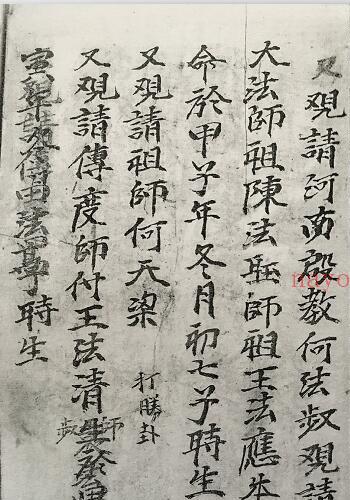 又覌請河南殿教何法叔覌請
大法師祖陳法 師祖王法應本
命於甲子年冬月初七子時生
又覌請祖師何天梁 打勝卦
又覌請傳度師付王法清 師叔
寅 時生
mayo